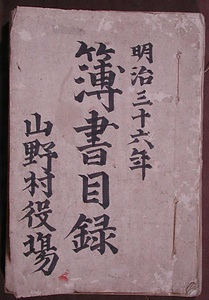 明治三十六年
簿書目録
山野村役場